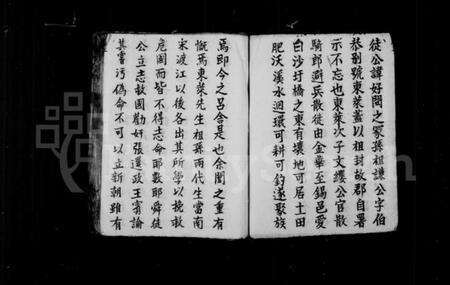 徒公諱好問之冢孫祖謙公字伯
恭別號東萊蓋以祖封故郡自署
示不忘也東萊次子文纓公官散
騎郎避兵散徒由金華至錫邑愛
白沙圩橋之東有壤地可居土田
肥沃溪水迴環可耕可釣遂聚族
焉即今之呂舍是也余閱之重有
慨焉東萊先生祖孫兩代生當南
宋渡江以後各出其所學以挽救
危國而皆不得志命耶數耶舜徒
公立志救國勸奸張邈政王賓論
其嘗污偽命不可以立新朝雖有